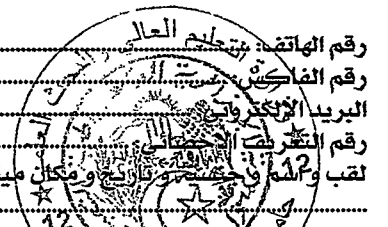 رقم الهاتف:
رقم الفاكس:
البريد الإلكتروني
رقم التعريف الإحصائي:
لقب و اسم و جنسية و تاريخ و مكان
التعليم العالي
12
12